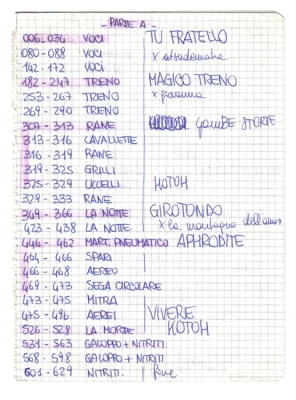 - PARTE A -
006-036 VOCI TU FRATELLO
080-088 VOCI x
142-172 VOCI
182-247 TRENO MAGICO TRENO
253-267 TRENO x
269-290 TRENO
307-313 RANE GAMBE STORTE
313-316 CAVALLETTE
316-319 RANE
319-325 GRILLI
325-329 UCCELLI KOTOH
329-333 RANE
349-366 LA NOTTE GIROTONDO
423-438 LA NOTTE x la montagna dell'amore
446-462 MART. PNEUMATICO APHRODITE
464-466 SPARI
466-468 AEREO
469-473 SEGA CIRCOLARE
473-475 MITRA
475-496 AEREI VIVERE
526-528 LA MORTE KOTOH
531-563 GALOPPO + NITRITI
568-598 GALOPPO + NITRITI
601-629 NITRITI. fine